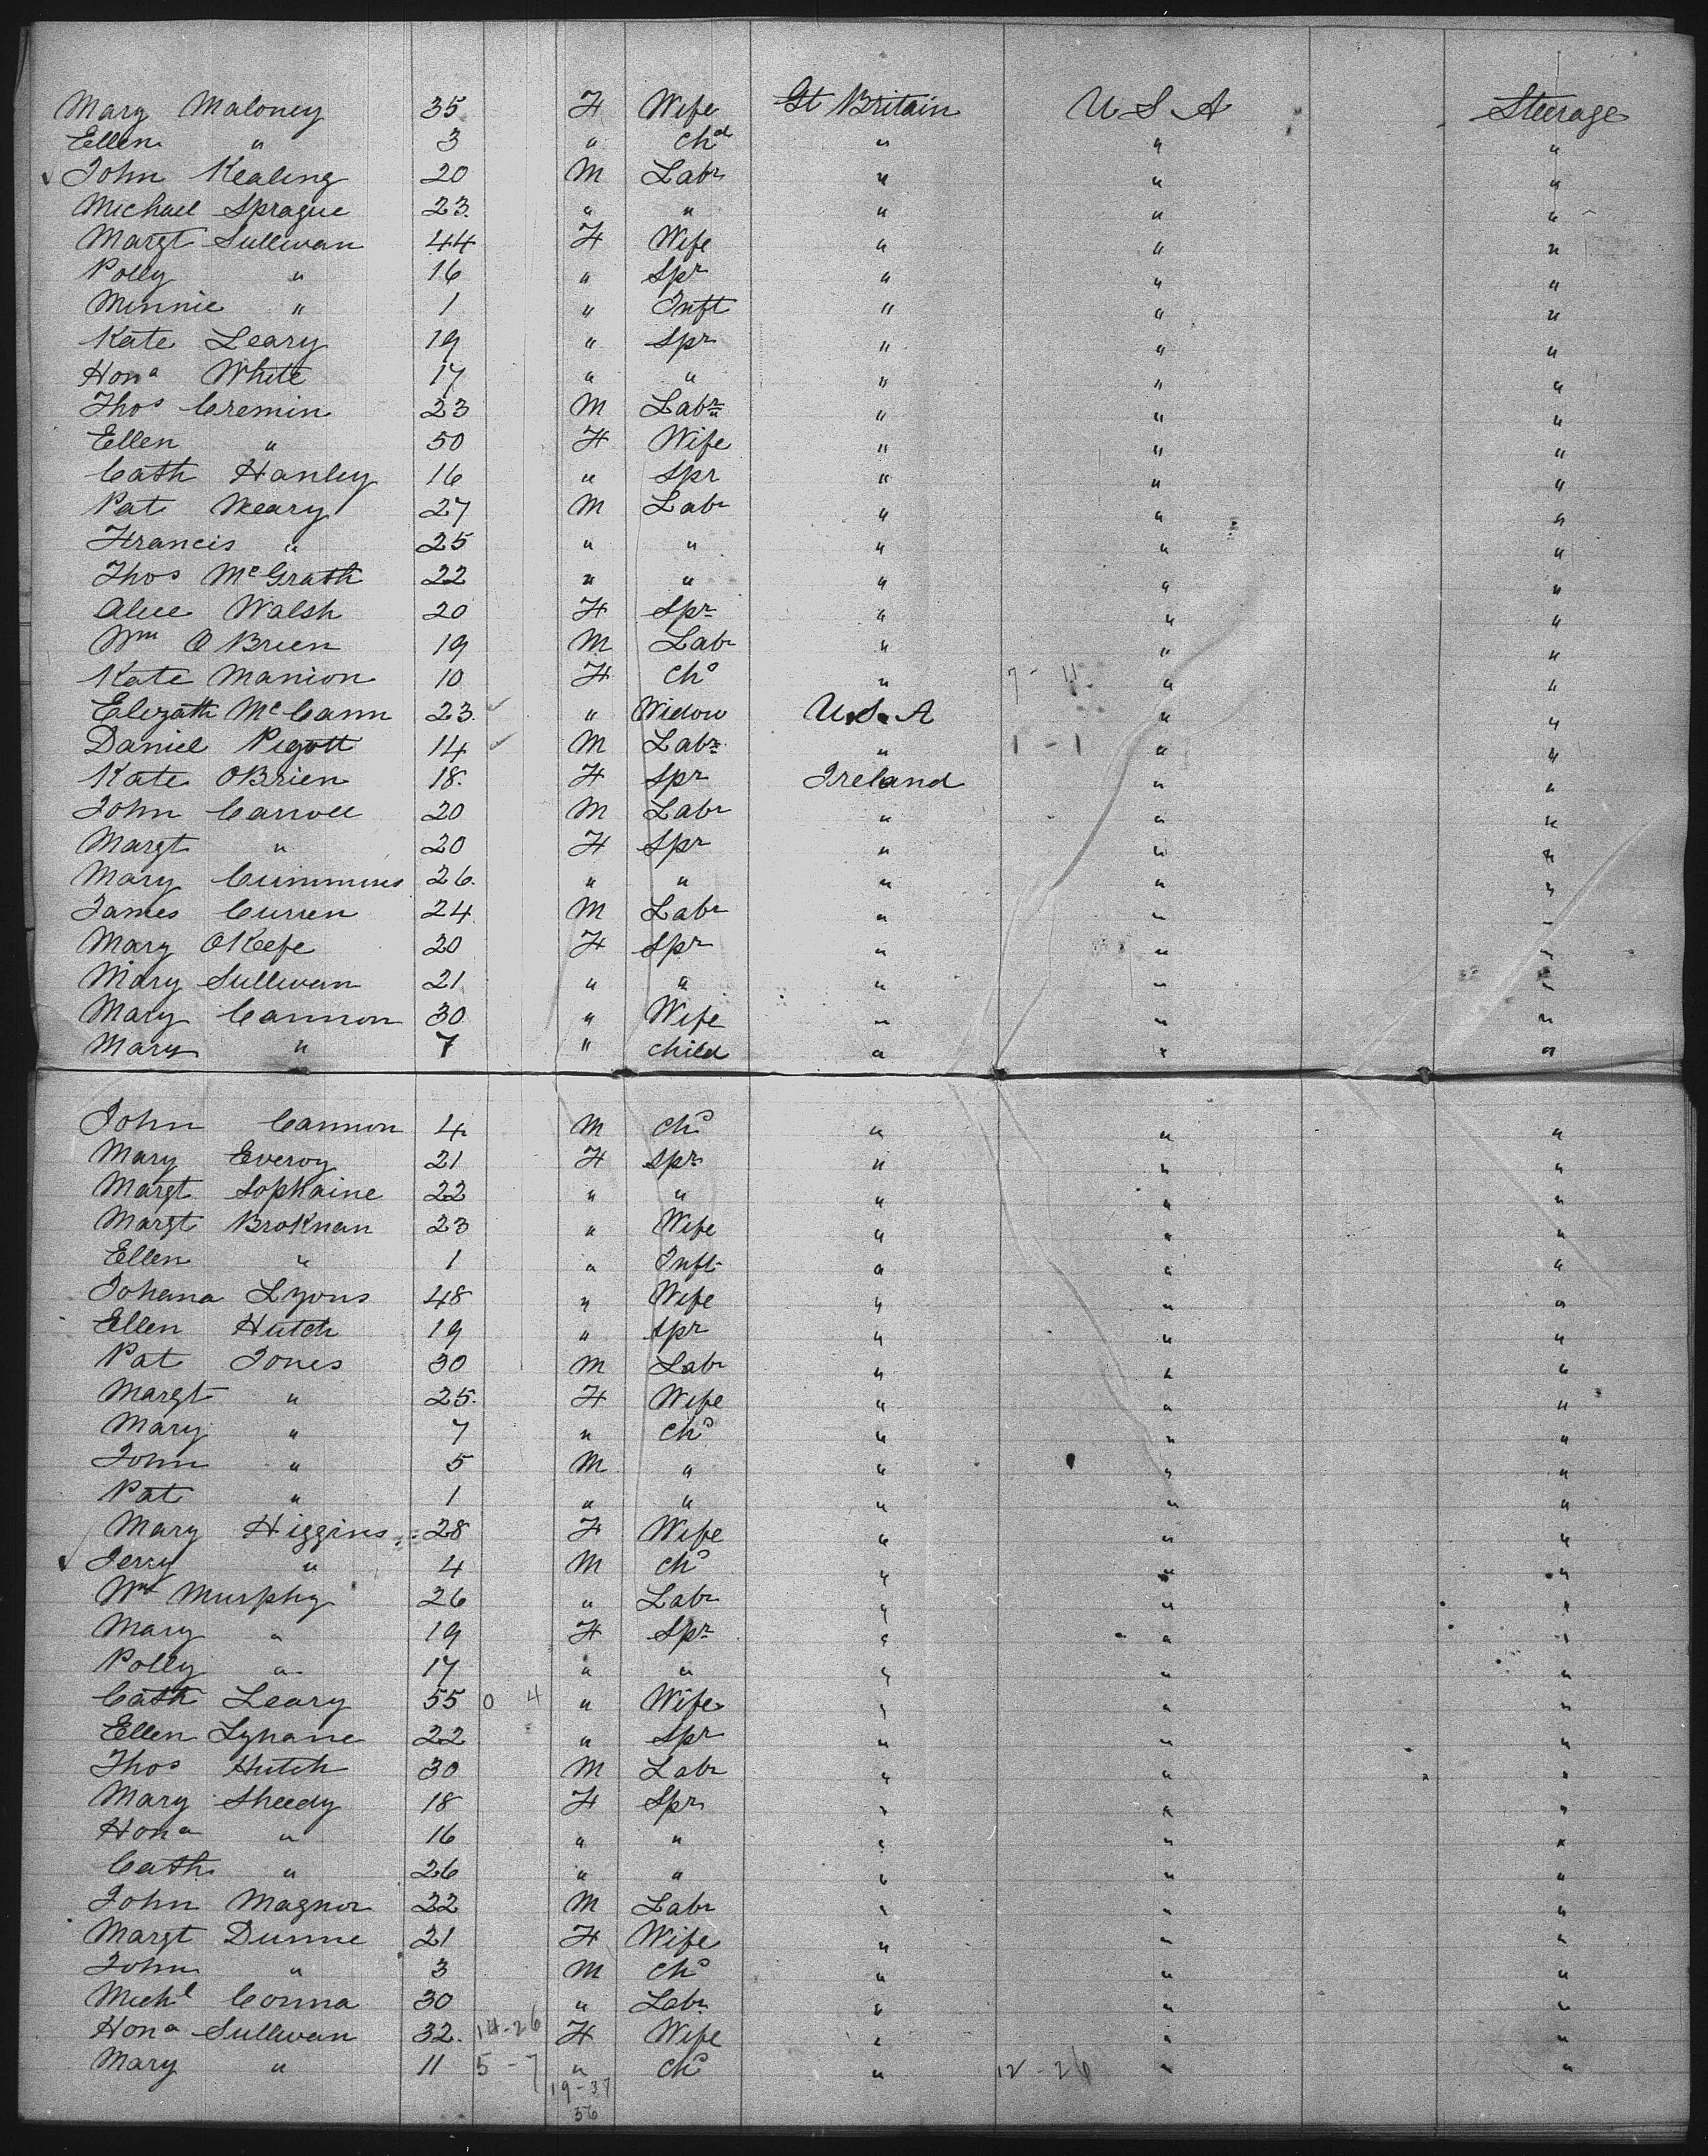 Mary Maloney 35 F Wife Gt Britain U S A Steerage
Ellen " 3 " Chd " " "
John Kealing 20 M Labr " " "
Michael Sprague 23 " " " " "
Margt Sullivan 44 F Wife " " "
Polly " 16 " Spr " " "
Minnie " 1 " Inft " " "
Kate Leary 19 " Spr " " "
Hona White 17 " " " " "
Thos Cremin 23 M Labr " " "
Ellen " 50 F Wife " " "
Cath Hanley 16 " Spr " " "
Pat Neary 27 M Labr " " "
Francis " 25 " " " " "
Thos McGrath 22 " " " " "
Alice Walsh 20 F Spr " " "
Wm O Brien 19 M Labr " " "
Kate Manion 10 F Chd " 7 - 4 " "
Elizath McCann 23 " Widow U.S.A " "
Daniel Pigott 14 M Labr " 1 - 1 " "
Kate OBrien 18 F Spr Ireland " "
John Carroll 20 M Labr " " "
Margt " 20 F Spr " " "
Mary Cummins 26 " " " " "
James Curren 24 M Labr " " "
Mary OKeefe 20 F Spr " " "
Mary Sullivan 21 " " " " "
Mary Cannon 30 " Wife " " "
Mary " 7 " child " " "
John Cannon 4 M Chd " " "
Mary Everoy 21 F Spr " " "
Margt Sopkaine 22 " " " " "
Margt Broknan 23 " Wife " " "
Ellen " 1 " Inft " " "
Johana Lyons 48 " Wife " " "
Ellen Hutch 19 " Spr " " "
Pat Jones 30 M Labr " " "
Margt " 25 F Wife " " "
Mary " 7 " Chd " " "
John " 5 M " " " "
Pat " 1 " " " " "
Mary Higgins 28 F Wife " " "
Jerry " 4 M Chd " " "
Wm Murphy 26 " Labr " " "
Mary " 19 F Spr " " "
Polly " 17 " " " " "
Cath Leary 55 0 4 " Wife " " "
Ellen Lynane 22 " Spr " " "
Thos Hutch 30 M Labr " " "
Mary Sheedy 18 F Spr " " "
Hona " 16 " " " " "
Cath " 26 " " " " "
John Magnor 22 M Labr " " "
Margt Dunne 21 F Wife " " "
John " 3 M Chd " " "
Michl Conna 30 " Labr " " "
Hona Sullivan 32 14-26 F Wife " " "
Mary " 11 5-7 " Chd " 12-26 " "
19-37
56